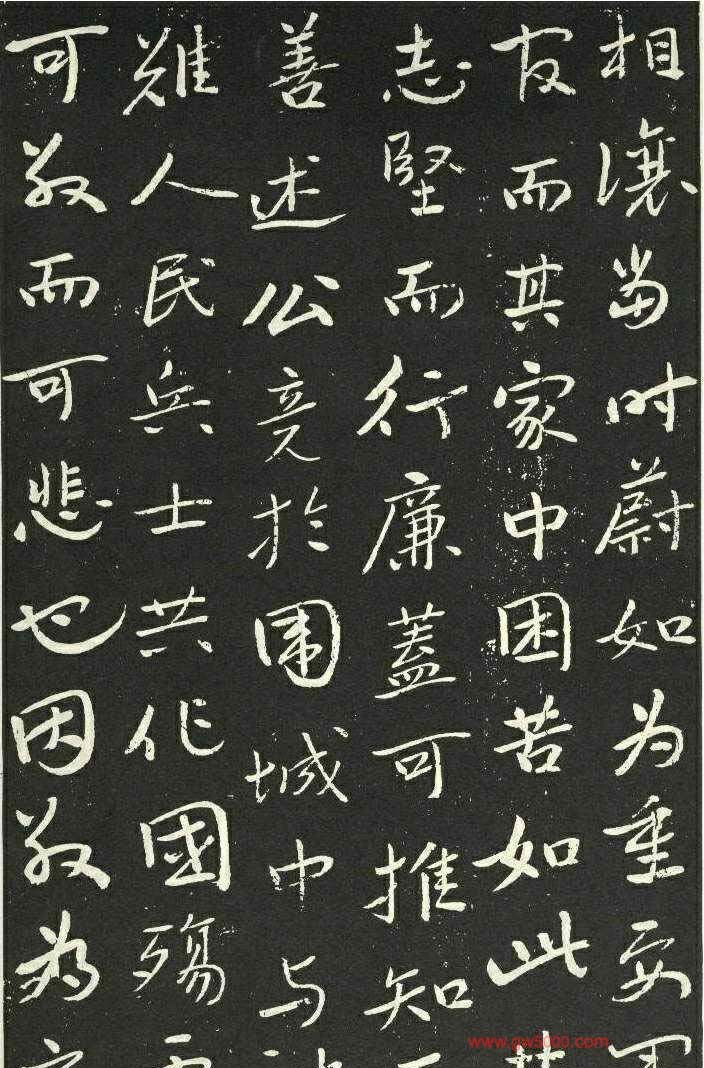 相讓當时蔚如为重要軍
官而其家中困苦如此其
志堅而行廉蓋可推知
善述公竟於围城中与
難人民兵士共作國殤
可敬而可悲也因敬為
www.gw5000.com